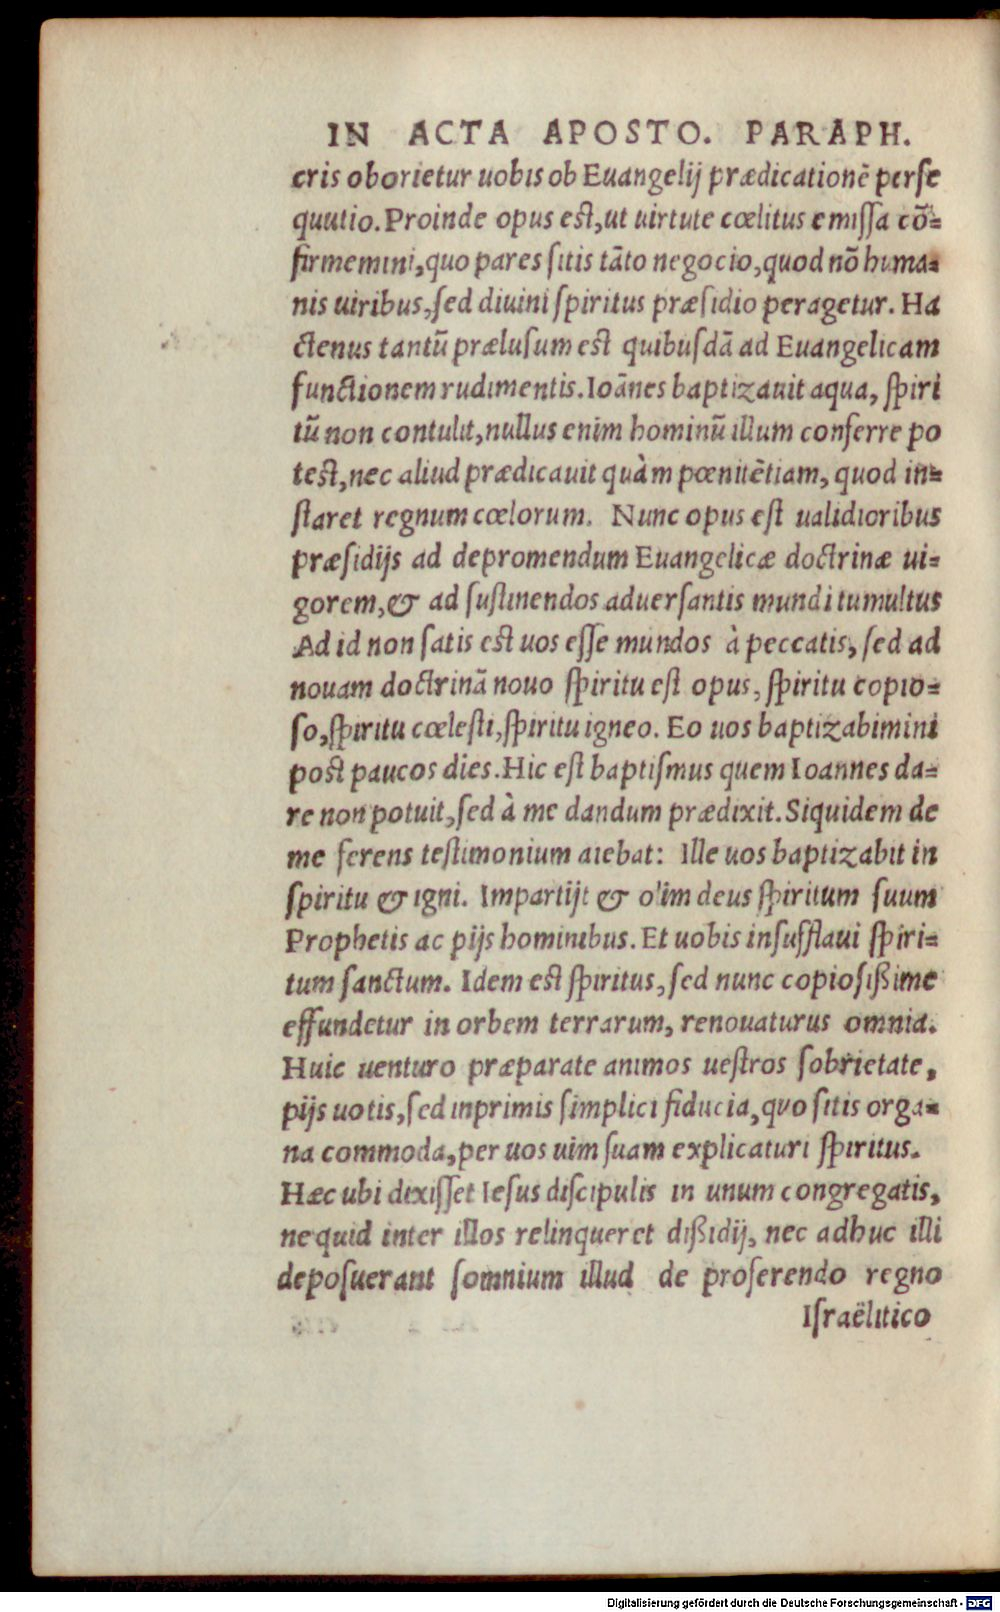 IN ACTA APOSTO. PARAPH.
cris oborietur uobis ob Euangelij prædicationē perſe
quutio. Proinde opus eſt, ut uirtute cœlitus emiſſa cō=
firmemini, quo pares ſitis tāto negocio, quod nō huma=
nis uiribus, ſed diuini ſpiritus præſidio peragetur. Ha
ctenus tantū præluſum eſt quibuſdā ad Euangelicam
functionem rudimentis. Ioānes baptizauit aqua, ſpiri
tū non contulit, nullus enim hominū illum conferre po
teſt, nec aliud prædicauit quàm pœnitētiam, quod in=
ſtaret regnum cœlorum. Nunc opus eſt ualidioribus
præſidijs ad depromendum Euangelicæ doctrinæ ui=
gorem, & ad ſuſtinendos aduerſantis mundi tumultus
Ad id non ſatis eſt uos eſſe mundos à peccatis, ſed ad
nouam doctrinā nouo ſpiritu eſt opus, ſpiritu copio=
ſo, ſpiritu cœleſti, ſpiritu igneo. Eo uos baptizabimini
poſt paucos dies. Hic eſt baptiſmus quem Ioannes da=
re non potuit, ſed à me dandum prædixit. Siquidem de
me ferens teſtimonium aiebat: Ille uos baptizabit in
ſpiritu & igni. Impartijt & olim deus ſpiritum ſuum
Prophetis ac pijs hominibus. Et uobis inſufflaui ſpiri=
tum ſanctum. Idem eſt ſpiritus, ſed nunc copioſißime
effundetur in orbem terrarum, renouaturus omnia.
Huic uenturo præparate animos ueſtros ſobrietate,
pijs uotis, ſed inprimis ſimplici fiducia, quo ſitis orga=
na commoda, per uos uim ſuam explicaturi ſpiritus.
Hæc ubi dixiſſet Ieſus diſcipulis in unum congregatis,
ne quid inter illos relinqueret dißidij, nec adhuc illi
depoſuerant ſomnium illud de proferendo regno
Iſraëlitico
Digitalisierung gefördert durch die Deutsche Forschungsgemeinschaft - DFG